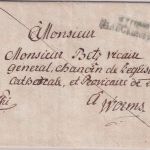 à Monsieur
Monsieur Betz vicaire
general, chanoin de l'eglise
cathedrale, et Provicaire de
à Worms